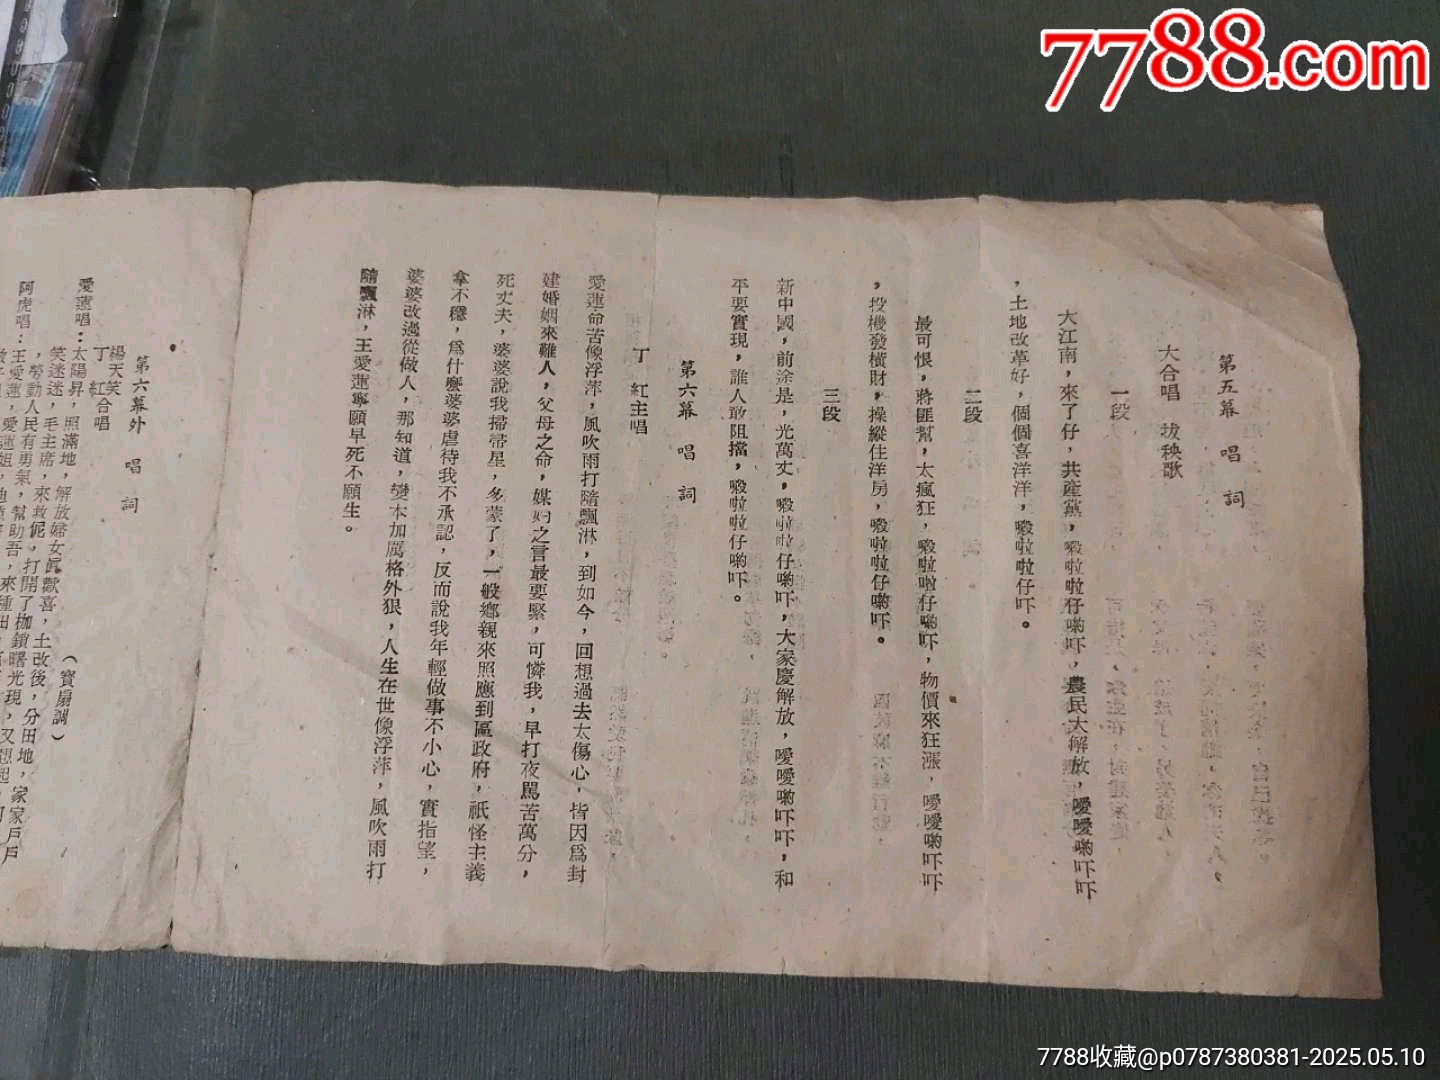 7788.com
第五幕 唱詞
大合唱 拔秧歌
一段
大江南，來了仔，共產黨，啜啦啦仔喲吓，農民大解放，噯噯喲吓吓
，土地改革好，個個喜洋洋，啜啦啦仔吓。
二段
最可恨，蔣匪幫，太瘋狂，啜啦啦仔喲吓，物價來狂漲，噯噯喲吓吓
，投機發橫財，操縱住洋房，啜啦啦仔喲吓。
三段
新中國，前途是，光萬丈，啜啦啦仔喲吓，大家慶解放，噯噯喲吓吓，和
平要實現，誰人敢阻擋，啜啦啦仔喲吓。
第六幕 唱詞
丁 紅主唱
愛蓮命苦像浮萍，風吹雨打隨飄淋，到如今，回想過去太傷心，皆因爲封
建婚姻來難人，父母之命，媒妁之言最要緊，可憐我，早打夜罵苦萬分，
死丈夫，婆婆說我掃帚星，多蒙了，一般鄉親來照應到區政府，祇怪主義
拿不穩，爲什麼婆婆虐待我不承認，反而說我年輕做事不小心，實指望，
婆婆改過從做人，那知道，變本加厲格外狠，人生在世像浮萍，風吹雨打
隨飄淋，王愛蓮寧願早死不願生。
第六幕外 唱詞
楊天笑
丁 紅合唱
（寶扇調）
愛蓮唱：太陽昇，照滿地，解放婦女眞歡喜，土改後，分田地，家家戶戶
笑迷迷，毛主席，來救伲，打開了枷鎖曙光現，又想起，
，勞動人民有勇氣，幫助吾，來種田，
阿虎唱：王愛蓮，愛蓮姐，
7788收藏@p0787380381-2025.05.10